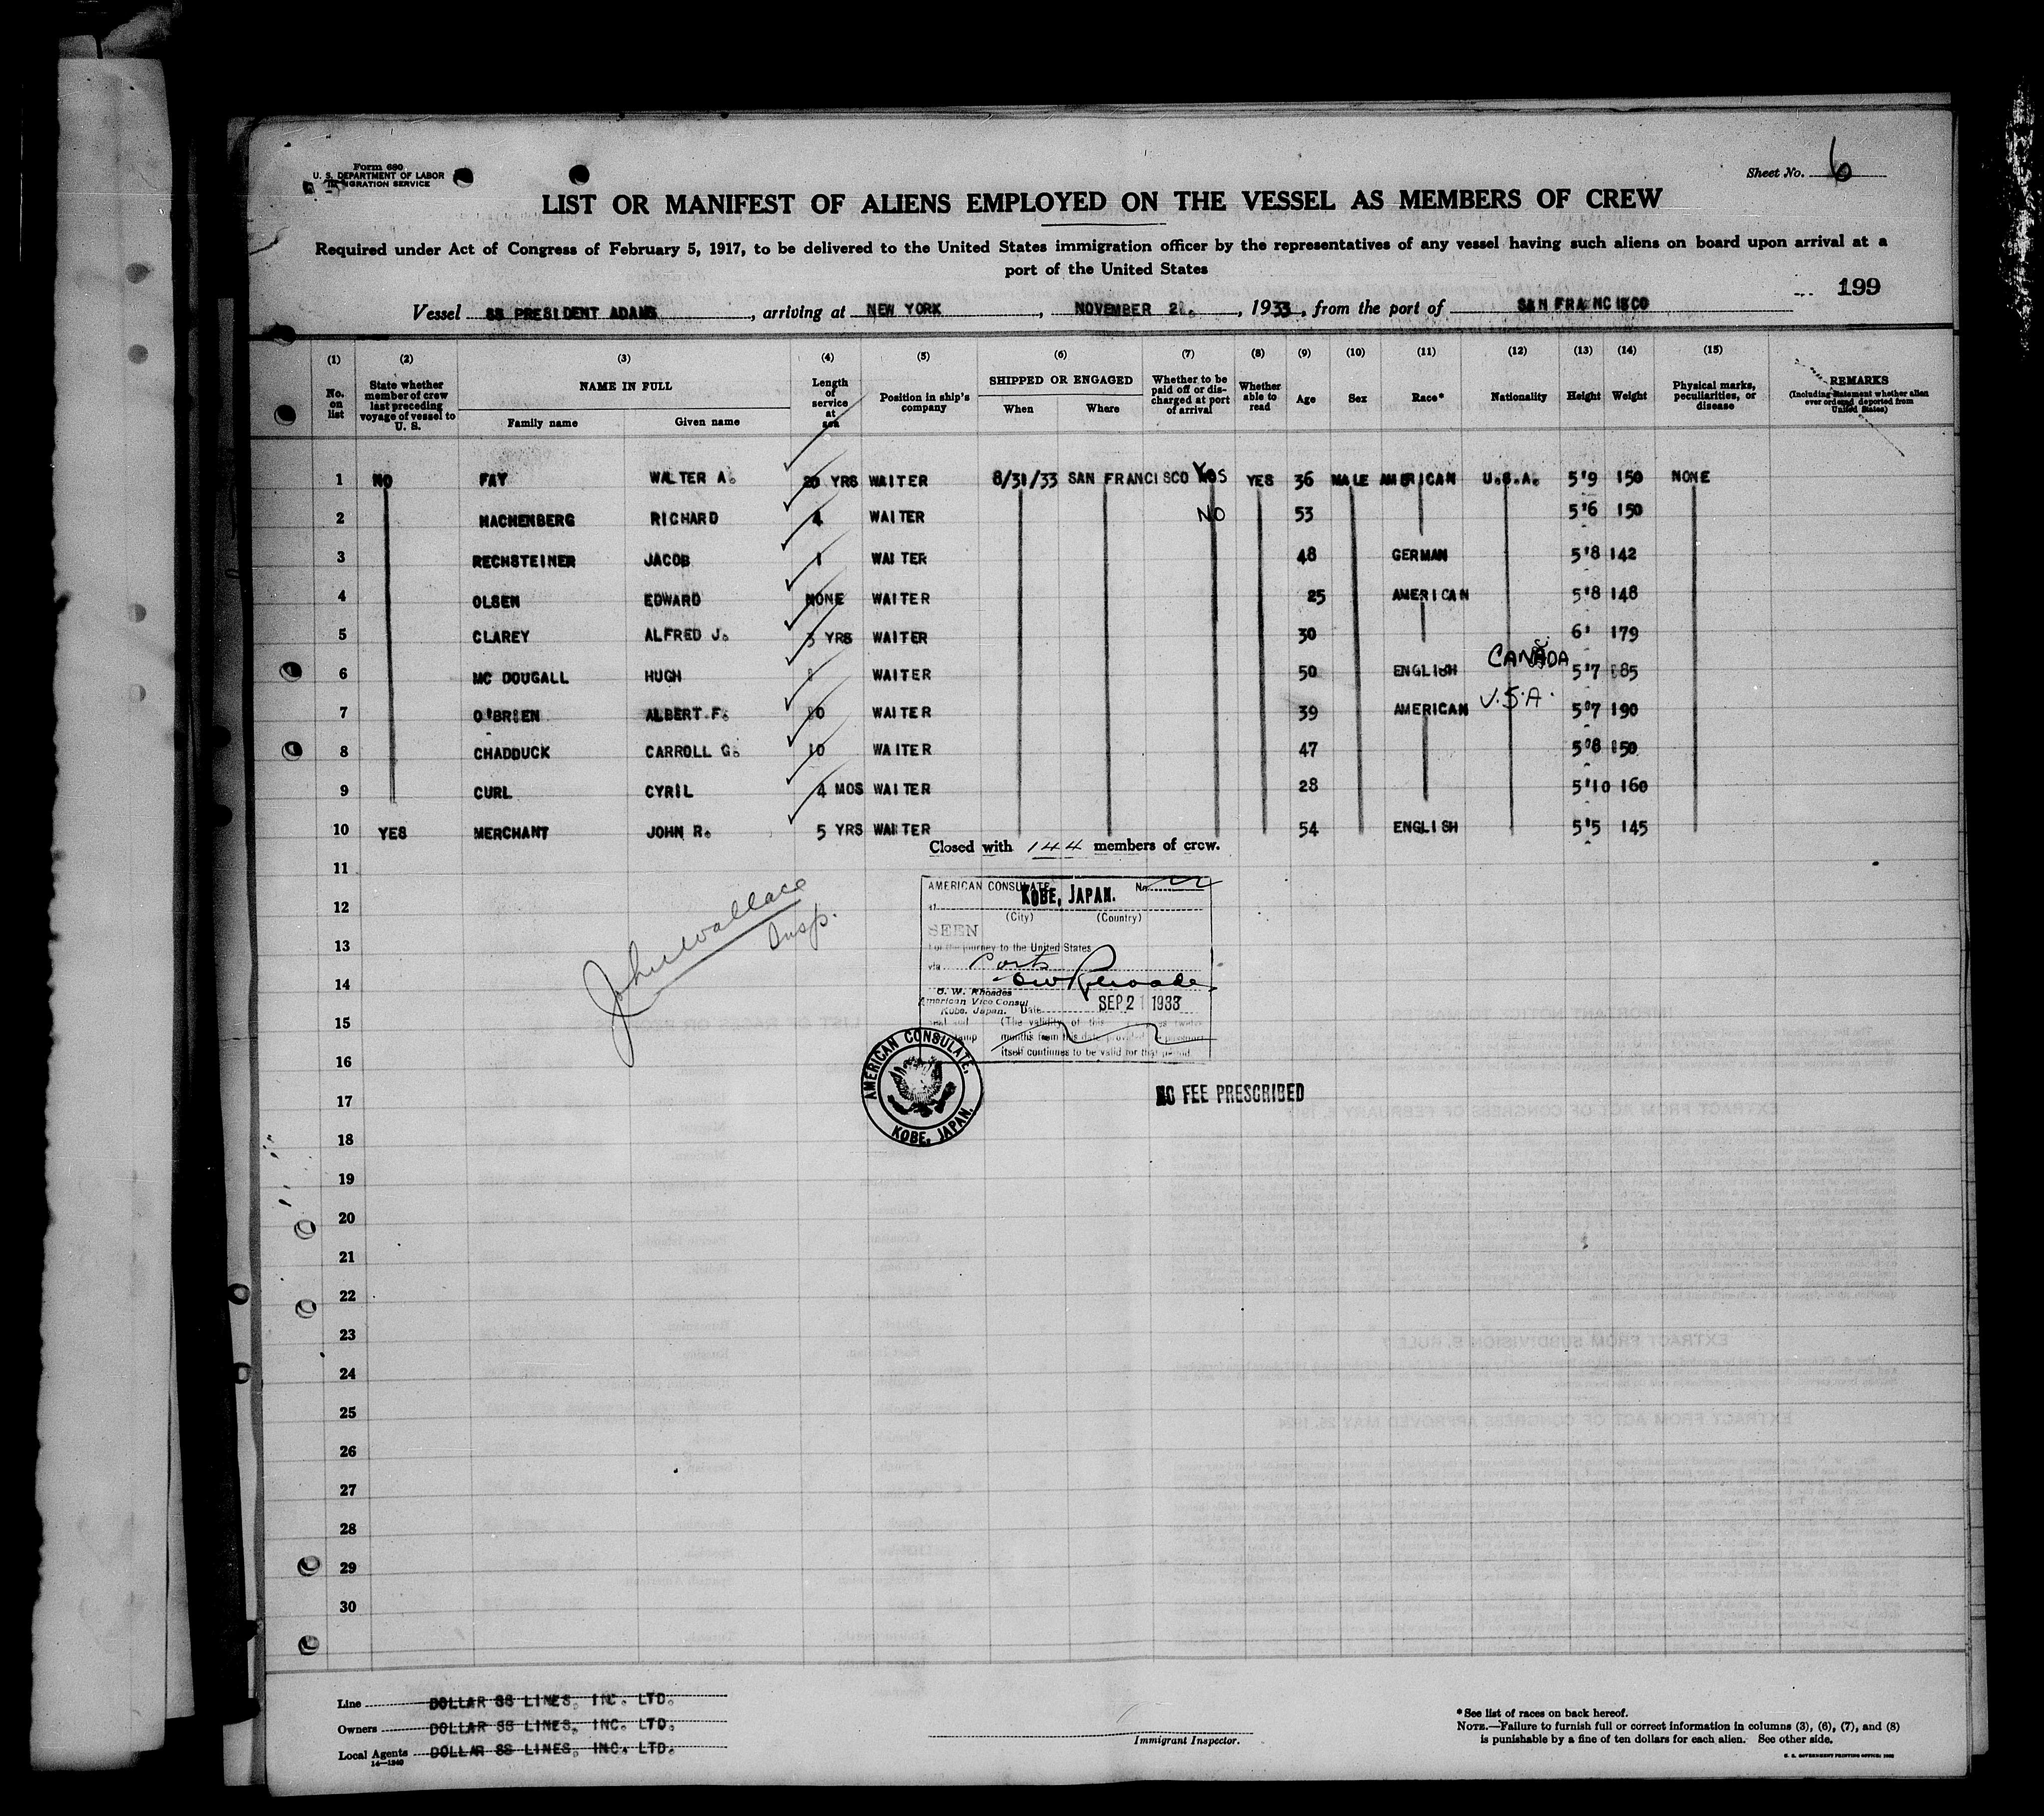 Form 680
U. S. DEPARTMENT OF LABOR
IMMIGRATION SERVICE
Sheet No. 6
LIST OR MANIFEST OF ALIENS EMPLOYED ON THE VESSEL AS MEMBERS OF CREW
Required under Act of Congress of February 5, 1917, to be delivered to the United States immigration officer by the representatives of any vessel having such aliens on board upon arrival at a
port of the United States
199
Vessel SS PRESIDENT ADAMS, arriving at NEW YORK, NOVEMBER 2, 1933, from the port of SAN FRANCISCO
(1) (2) (3) (4) (5) (6) (7) (8) (9) (10) (11) (12) (13) (14) (15)
No. on list
State whether member of crew last preceding voyage of vessel to U. S.
NAME IN FULL
Family name
Given name
Length of service at sea
Position in ship's company
SHIPPED OR ENGAGED
When
Where
Whether to be paid off or discharged at port of arrival
Whether able to read
Age
Sex
Race*
Nationality
Height
Weight
Physical marks, peculiarities, or disease
REMARKS
(Including statement whether alien ever ordered deported from United States)
1 NO FAY WALTER A. 20 YRS WAITER 8/31/33 SAN FRANCISCO YES YES 36 MALE AMERICAN U.S.A. 5'9 150 NONE
2 MACHENBERG RICHARD 4 WAITER NO 53 5'6 150
3 RECHSTEINER JACOB 1 WAITER 48 GERMAN 5'8 142
4 OLSEN EDWARD NONE WAITER 25 AMERICAN 5'8 148
5 CLAREY ALFRED J. 3 YRS WAITER 30 6' 179
6 MC DOUGALL HUGH WAITER 50 ENGLISH CANADA 5'7 185
7 O'BRIEN ALBERT F. WAITER 39 AMERICAN U.S.A. 5'7 190
8 CHADDUCK CARROLL G. 10 WAITER 47 5'8 150
9 CURL CYRIL 4 MOS WAITER 28 5'10 160
10 YES MERCHANT JOHN R. 5 YRS WAITER 54 ENGLISH 5'5 145
Closed with 144 members of crew.
11
12
13
14
15
16
17
18
19
20
21
22
23
24
25
26
27
28
29
30
John Wallace
Insp.
AMERICAN CONSULATE No.
at KOBE, JAPAN.
(City) (Country)
SEEN
For the journey to the United States
via Ports
O W Rhoades
O. W. Rhoades
American Vice Consul
Kobe, Japan. Date SEP 21 1933
(The validity of this
months from this date provided
itself continues to be valid for that period
AMERICAN CONSULATE,
KOBE, JAPAN.
NO FEE PRESCRIBED
Line DOLLAR SS LINES, INC. LTD.
Owners DOLLAR SS LINES, INC. LTD.
Local Agents DOLLAR SS LINES, INC. LTD.
14—1240
Immigrant Inspector.
*See list of races on back hereof.
NOTE.—Failure to furnish full or correct information in columns (3), (6), (7), and (8)
is punishable by a fine of ten dollars for each alien. See other side.